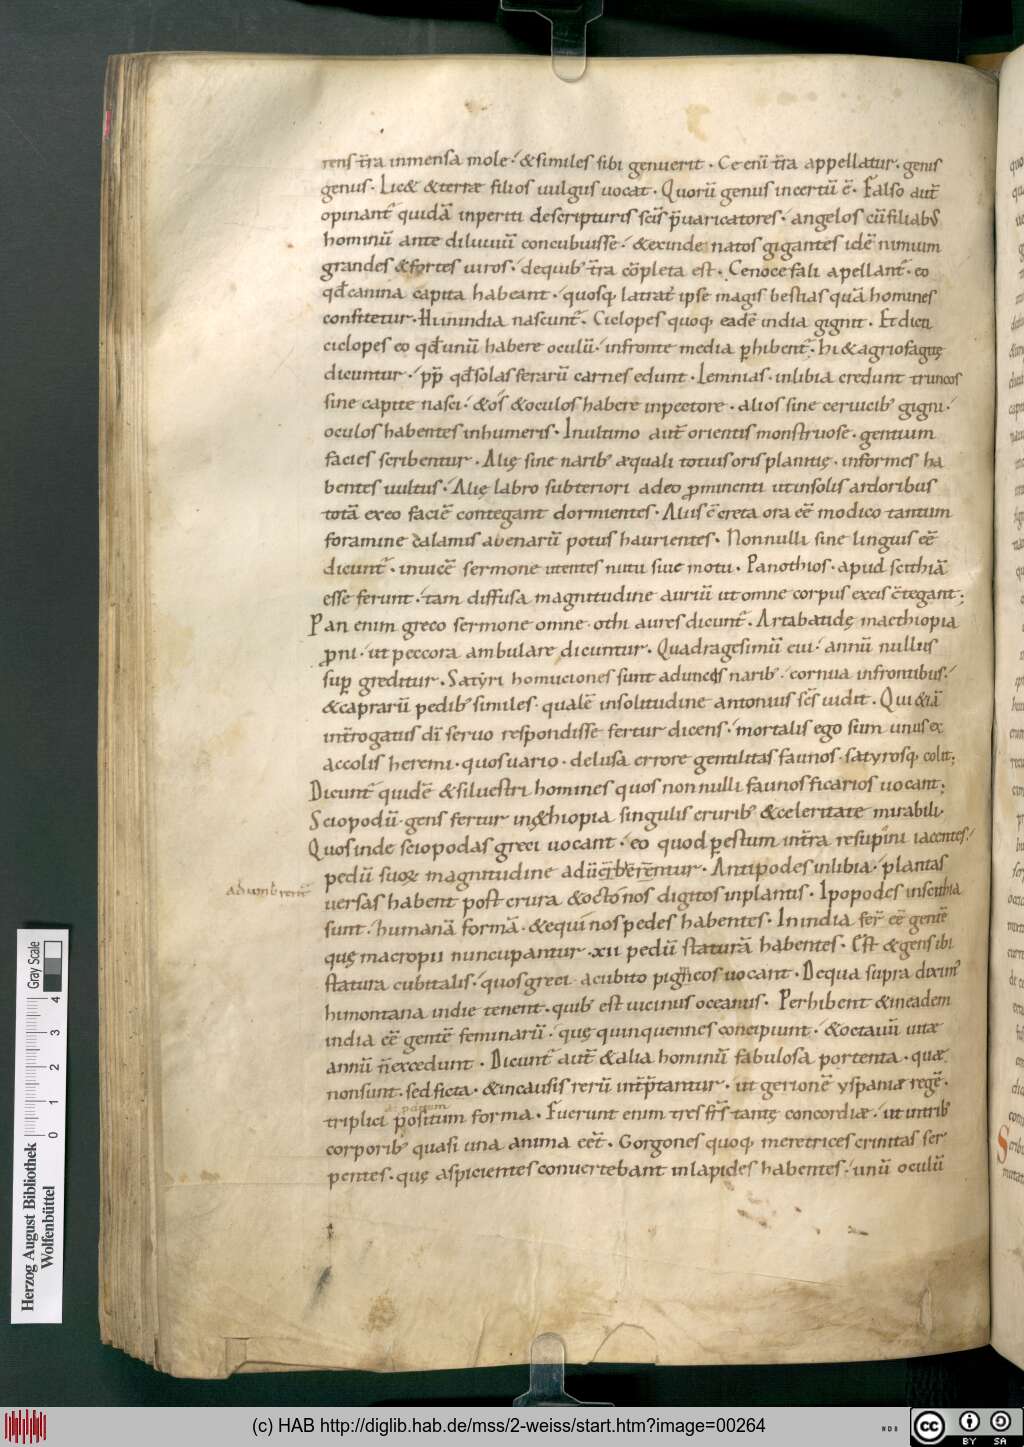 rens tr̄ra inmensa mole · & similes sibi genuerit · Ge enī tr̄ra appellatur · genus
genus · Lic& & terrae filios uulgus uocat · Quorū genus incertū ē · Falso aut̄
opinant̄ quidā inperiti descripturis sc̄is p̄uaricatores · angelos cū filiab;
hominū ante diluuiū concubuisse · & exinde natos gigantes idē nimium
grandes & fortes uiros · de quib; tr̄ra cōpleta est · Cenocefali apellant̄ · eo
qđ canina capita habeant · quosq; latrat; ipse magis bestias quā homines
confitetur · Hi inindia nascunt̄ · Ciclopes quoq; eadē india gignit · Et dicti
ciclopes eo qđ unū habere oculū · infronte media phibent̄ · hi & agriofagitę
dicuntur · pp̄ qđ solas ferarū carnes edunt · Lemnias · inlibia credunt truncos
sine capite nasci · & os & oculos habere inpectore · alios sine ceruicib; gigni ·
oculos habentes inhumeris · Inultimo aut̄ orientis monstruose · gentium
facies scribentur · Alię sine narib; æquali totius oris planitię · informes ha
bentes uultus · Alię labro subteriori adeo prominenti ut insolis ardoribus
totā ex eo faciē contegant dormientes · Aliis c̄creta ora eē modico tantum
foramine calamis auenarū potus haurientes · Nonnulli sine linguis eē
dicunt̄ · inuicē sermone utentes nutu siue motu · Panothios · apud scithiā
esse ferunt · tam diffusa magnitudine auriū ut omne corpus ex eis c̄tegant ;
Pan enim greco sermone omne · othi aures dicunt̄ · Artabatidę inaethiopia
proni · ut peccora ambulare dicuntur · Quadragesimū eui · annū nullus
sup greditur · Satyri homuciones sunt aduncis narib; · cornua infrontibus ·
& caprarū pedib; similes · qualē insolitudine antonius sc̄s uidit · Qui & iā
intr̄rogatus dī seruo respondisse fertur dicens · mortalis ego sum unus ex
accolis heremi · quos uario · delusa errore gentilitas faunos · satyrosq; colit ;
Dicunt̄ quidē & siluestri homines quos nonnulli faunos ficarios uocant ;
Sciopodū · gens fertur in&hiopia singulis crurib; & celeritate mirabili ·
Quos inde sciopodas greci uocant · eo quod p estum intr̄a resupini iacentes ·
pedū suoꝝ magnitudine adūcrb̄erentur · Antipodes inlibia · plantas
adumbrent̄
uersas habent post crura & octonos digitos inplantis · Ipopodes inscithia
sunt · humanā formā · & equinos pedes habentes · Inindia fer̄ eē gentē
quę macropii nuncupantur · xii pedū staturā habentes · Est & gens ibi
statura cubitalis · quos greci a cubito pigmeos uocant · De qua supra diximꝰ
hi montana indie tenent · quib; est uicinus oceanus · Perhibent & in eadem
india eē gentē feminarū · quę quinquennes concipiunt · & octauū uitæ
annū n̄ excedunt · Dicunt̄ aut̄ & alia hominū fabulosa portenta · quæ
non sunt · sed ficta · & in causis rerū intp̄tantur · ut gerionē yspaniæ regē ·
triplici p̄positum forma · Fuerunt enim tres fr̄s tantę concordiæ · ut in trib;
corporib; quasi una anima eēt · Gorgones quoq; meretrices crinitas ser
pentes · quę aspicientes conuertebant in lapides habentes · unū oculū
Herzog August Bibliothek
Wolfenbüttel
0 1 2 3 4
Gray Scale
(c) HAB http://diglib.hab.de/mss/2-weiss/start.htm?image=00264
cc BY SA